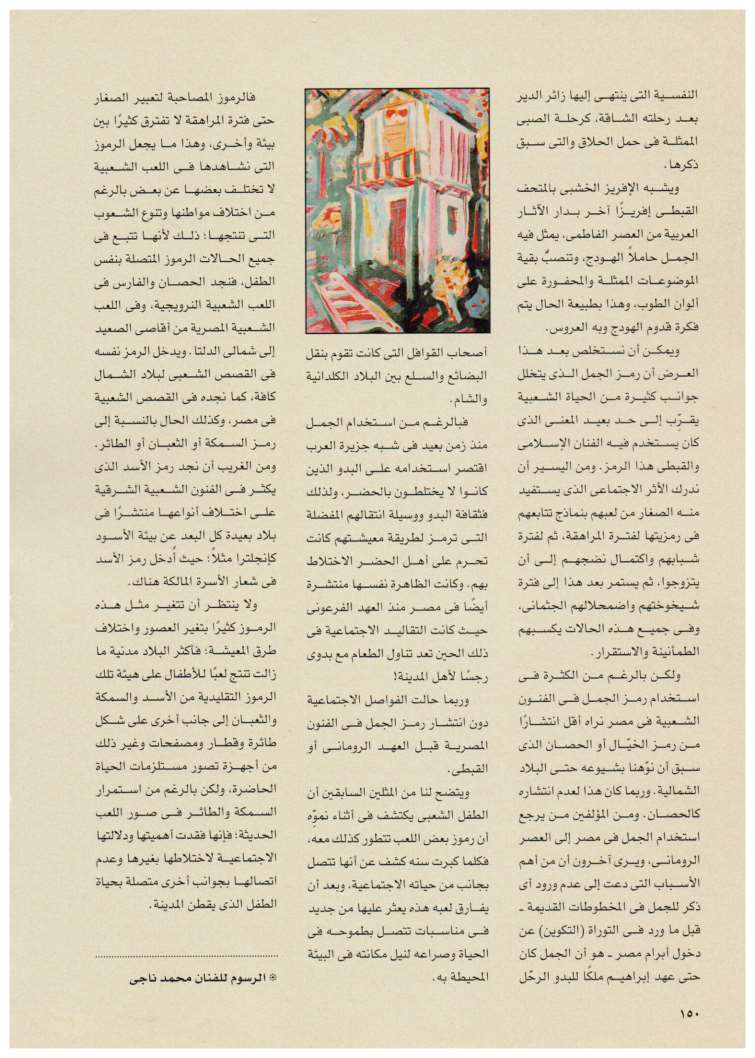 النفسـية التى ينتهـى إليها زائر الدير
بعـد رحلته الشـاقة، كرحلـة الصبى
الممثلـة فى حمل الحلاق والتى سـبق
ذكرها.
ويشـبه الإفريز الخشبى بالمتحف
القبطـى إفريـزًا آخـر بـدار الآثـار
العربية من العصر الفاطمى، يمثل فيه
الجمـل حاملاً الهـودج، وتنصبُّ بقية
الموضوعـات الممثلـة والمحفـورة على
ألوان الطوب، وهذا بطبيعة الحال يتم
فكرة قدوم الهودج وبه العروس.
ويمكـن أن نسـتخلص بعـد هـذا
العـرض أن رمـز الجمل الـذى يتخلل
جوانـب كثيـرة مـن الحياة الشـعبية
يقـرّب إلـى حـد بعيـد المعنـى الذى
كان يسـتخدم فيـه الفنان الإسـلامى
والقبطى هذا الرمـز. ومن اليسـير أن
ندرك الأثر الاجتماعى الذى يسـتفيد
منـه الصغار من لعبهم بنماذج تتابعهم
فى رمزيتها لفتـرة المراهقة، ثم لفترة
شـبابهم واكتمـال نضجهـم إلـى أن
يتزوجوا، ثم يستمر بعد هذا إلى فترة
شـيخوختهم واضمحلالهم الجثمانى،
وفى جميـع هـذه الحالات يكسـبهم
الطمأنينة والاستقرار.
ولكـن بالرغـم مـن الكثـرة فـى
اسـتخدام رمـز الجمـل فـى الفنـون
الشـعبية فى مصر نراه أقل انتشـارًا
مـن رمـز الخيّـال أو الحصـان الذى
سـبق أن نوّهنا بشـيوعه حتـى البلاد
الشمالية. وربما كان هذا لعدم انتشاره
كالحصـان. ومـن المؤلفين مـن يرجع
استخدام الجمل فى مصر إلى العصر
الرومانـى، ويـرى آخـرون أن من أهم
الأسـباب التى دعت إلى عدم ورود أى
ذكر للجمل فى المخطوطات القديمة ـ
قبل ما ورد فـى التوراة (التكوين) عن
دخول أبرام مصر ـ هو أن الجمل كان
حتى عهد إبراهيـم ملكًا للبدو الرحّل
أصحاب القوافل التى كانت تقوم بنقل
البضائع والسـلع بين البلاد الكلدانية
والشام.
فبالرغـم مـن اسـتخدام الجمـل
منذ زمن بعيد فى شـبه جزيرة العرب
اقتصر اسـتخدامه علـى البدو الذين
كانـوا لا يختلطـون بالحضـر، ولذلك
فثقافة البدو ووسيلة انتقالهم المفضلة
التـى ترمـز لطريقة معيشـتهم كانت
تحـرم على أهـل الحضـر الاختلاط
بهم، وكانت الظاهرة نفسـها منتشـرة
أيضًا فى مصـر منذ العهد الفرعونى
حيـث كانت التقاليـد الاجتماعية فى
ذلك الحين تعد تناول الطعام مع بدوى
رجسًا لأهل المدينة!
وربما حالت الفواصل الاجتماعية
دون انتشـار رمـز الجمل فـى الفنون
المصريـة قبـل العهـد الرومانـى أو
القبطى.
ويتضح لنا من المثلين السابقين أن
الطفل الشعبى يكتشف فى أثناء نموّه
أن رموز بعض اللعب تتطور كذلك معه،
فكلما كبرت سنه كشف عن أنها تتصل
بجانب من حياته الاجتماعية، وبعد أن
يفـارق لعبه هذه يعثر عليها من جديد
فـى مناسـبات تتصـل بطموحـه فى
الحياة وصراعه لنيل مكانته فى البيئة
المحيطة به.
فالرموز المصاحبة لتعبير الصغار
حتى فترة المراهقة لا تفترق كثيرًا بين
بيئة وأخـرى، وهذا مـا يجعل الرموز
التى نشـاهدها فـى اللعب الشـعبية
لا تختلـف بعضهـا عن بعـض بالرغم
مـن اختلاف مواطنها وتنوع الشـعوب
التـى تنتجهـا؛ ذلـك لأنهـا تتبـع فى
جميع الحـالات الرموز المتصلة بنفس
الطفل، فنجد الحصـان والفارس فى
اللعب الشعبية النرويجية، وفى اللعب
الشـعبية المصرية من أقاصى الصعيد
إلى شمالى الدلتا. ويدخل الرمز نفسه
فى القصص الشـعبى لبلاد الشـمال
كافة، كما نجده فى القصص الشعبية
فى مصر، وكذلك الحال بالنسـبة إلى
رمـز السـمكة أو الثعبـان أو الطائر.
ومن الغريب أن نجد رمز الأسد الذى
يكثـر فـى الفنون الشـعبية الشـرقية
علـى اختـلاف أنواعهـا منتشـرًا فى
بلاد بعيدة كل البعد عن بيئة الأسـود
كإنجلترا مثلاً؛ حيث أُدخل رمز الأسد
فى شعار الأسرة المالكة هناك.
ولا ينتظـر أن تتغيـر مثـل هـذه
الرمـوز كثيرًا بتغير العصور واختلاف
طرق المعيشـة؛ فأكثر البلاد مدنية ما
زالت تنتج لعبًا للأطفال على هيئة تلك
الرموز التقليدية من الأسـد والسمكة
والثعبـان إلى جانب أخرى على شـكل
طائرة وقطـار ومصفحات وغير ذلك
من أجهـزة تصور مسـتلزمات الحياة
الحاضرة، ولكن بالرغم من اسـتمرار
السـمكة والطائـر فـى صـور اللعب
الحديثة؛ فإنها فقدت أهميتها ودلالتها
الاجتماعيـة لاختلاطها بغيرها وعدم
اتصالهـا بجوانب أخرى متصلة بحياة
الطفل الذى يقطن المدينة.
* الرسوم للفنان محمد ناجى
١٥٠